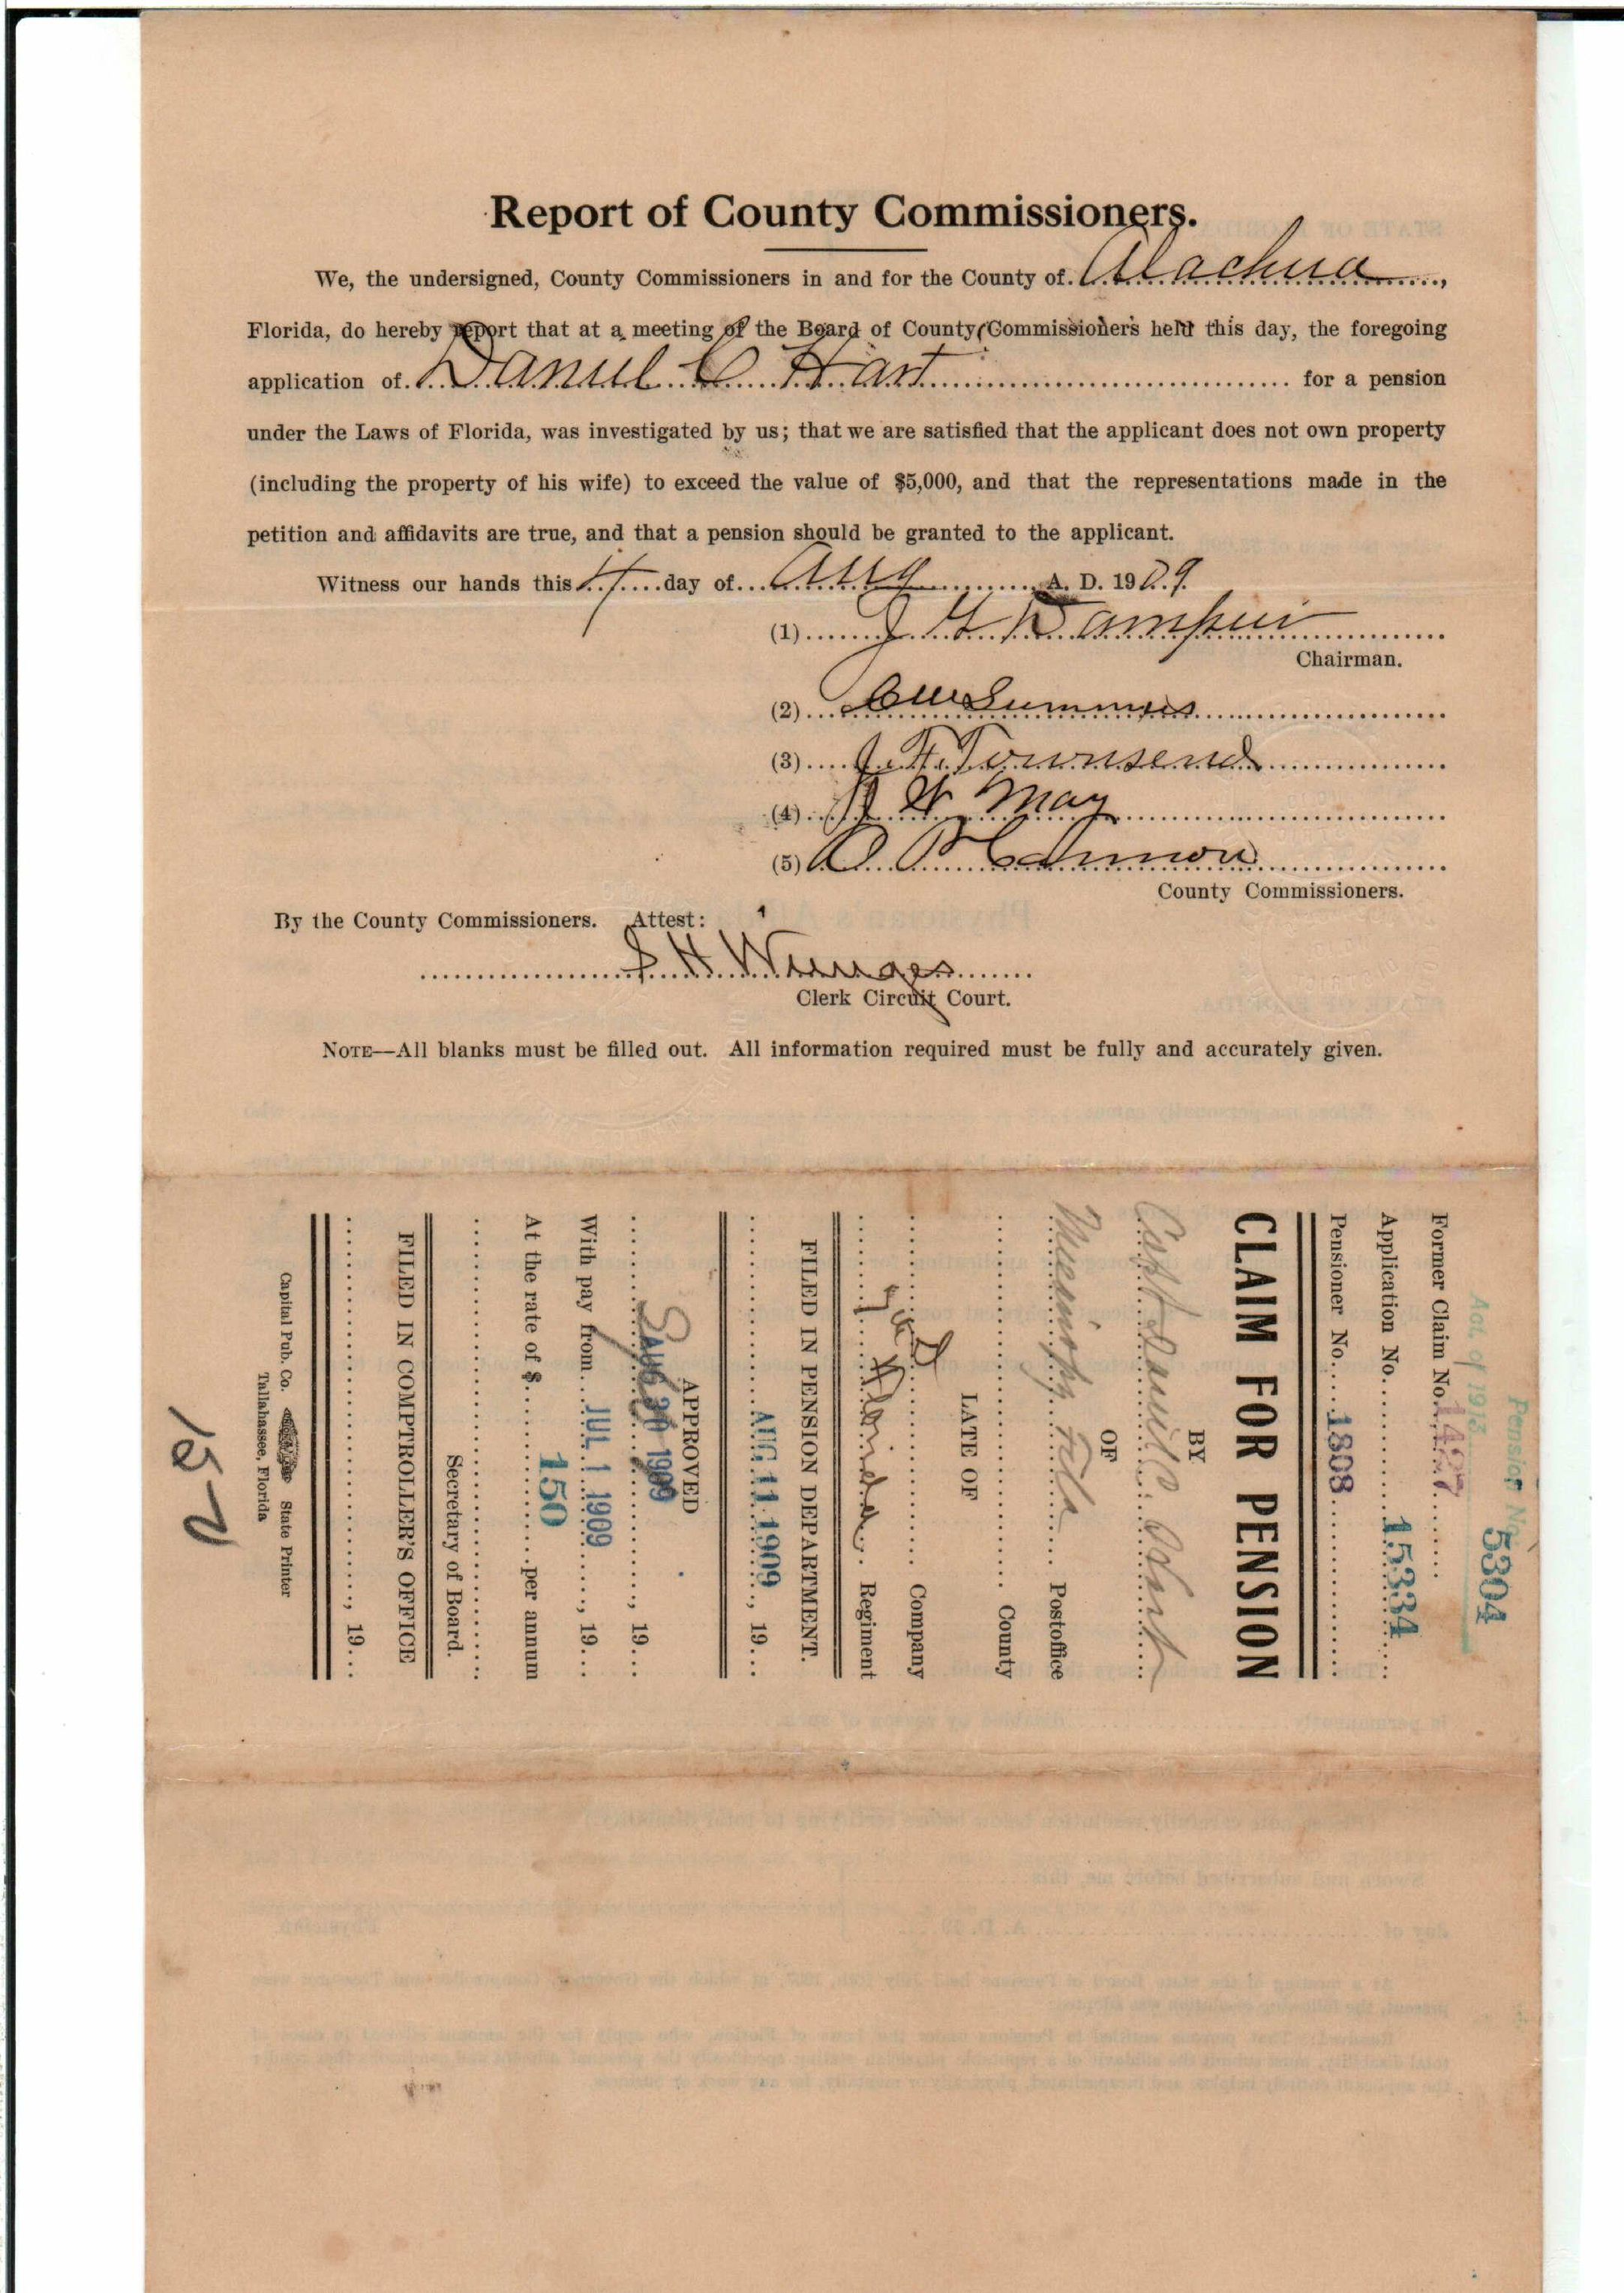 Report of County Commissioners.
We, the undersigned, County Commissioners in and for the County of Alachua,
Florida, do hereby report that at a meeting of the Board of County Commissioners held this day, the foregoing
application of Daniel C Hart for a pension
under the Laws of Florida, was investigated by us; that we are satisfied that the applicant does not own property
(including the property of his wife) to exceed the value of $5,000, and that the representations made in the
petition and affidavits are true, and that a pension should be granted to the applicant.
Witness our hands this 4 day of Aug A. D. 1909.
(1) J G Dampier
Chairman.
(2) Summers
(3) J. F. Townsend
(4) May
(5) Cannon
County Commissioners.
By the County Commissioners. Attest:
S H Wienges
Clerk Circuit Court.
NOTE—All blanks must be filled out. All information required must be fully and accurately given.
Pension No. 5304
Act of 1913
Former Claim No. 1427
Application No. 15334
Pensioner No. 1808
CLAIM FOR PENSION
BY
Capt Daniel C. Hart
OF
Micanopy Fla Postoffice
County
LATE OF
Company
7th Florida Regiment
FILED IN PENSION DEPARTMENT.
AUG 11 1909, 19
APPROVED
AUG 20 1909, 19
With pay from JUL 1 1909, 19
At the rate of $ 150 per annum
Secretary of Board.
FILED IN COMPTROLLER'S OFFICE
, 19
Capital Pub. Co. State Printer
Tallahassee, Florida